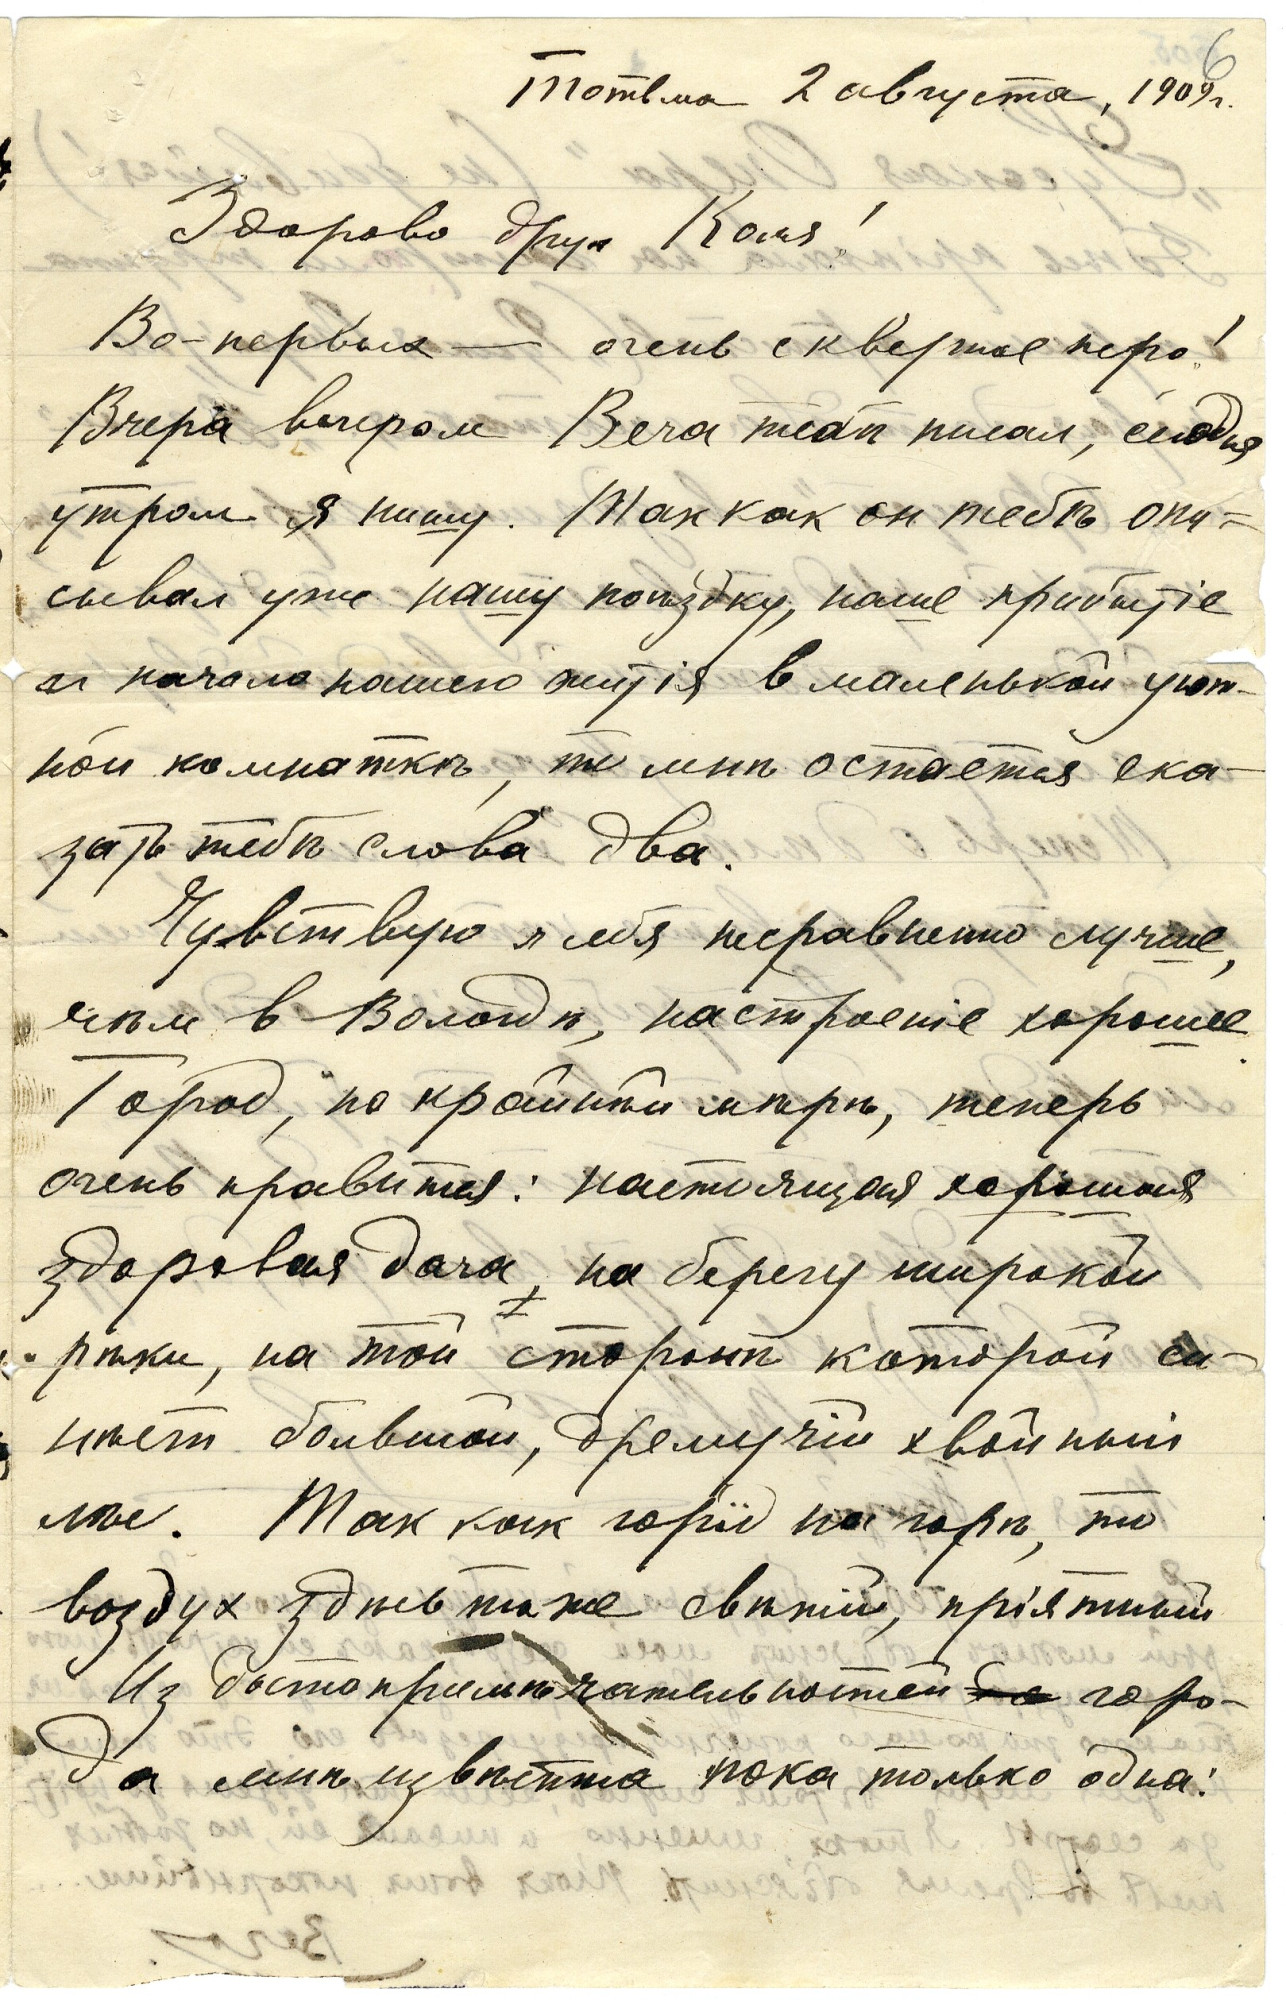 6
Тотьма 2 августа, 1909 г.
Здорово друг Коля!
Во-первых — очень скверное перо!
Вчера вечером Веча тебѣ писал, сегодня
утром я пишу. Так как он тебѣ опи-
сывал уже нашу поѣздку, наше прибытіе
и начало нашего житія в маленькой уют-
ной комнаткѣ, то мнѣ остается ска-
зать тебѣ слова два.
Чувствую я себя несравненно лучше,
чѣм в Вологдѣ, настроеніе хорошее.
Город, по крайней мѣрѣ, теперь
очень нравится: настоящая хорошая
здоровая дача, на берегу широкой
рѣки, на той сторонѣ которой си-
нѣет большой, дремучій хвойный
лѣс. Так как город на горѣ, то
воздух здѣсь тоже свѣжій, пріятный
Из достопримѣчательностей горо-
да мнѣ извѣстна пока только одна: